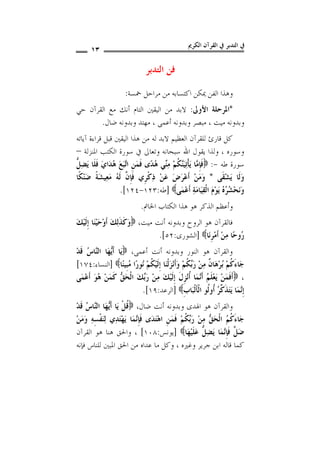 في التدبر في القرآن الكريم
١٣
فن التدبر
وهذا الفن يمكن اكتسابه من مراحل خمسة:
*المرحلة الأولى: لابد من اليقين التام أنك مع القرآن حي
وبدونه ميت ، مبصر وبدونه أعمى ، مهتد وبدونه ضال.
كل قارئ للقرآن العظيم لابد له من هذا اليقين قبل قراءة آياته
وسوره ، ولذا يقول الله سبحانه وتعالى في سورة الكتب المنزلة –
سورة طه –: ﴿فَإِمَّا يَأْتِيَنَّكُمْ مِنِّي هُدًى فَمَنِ اتَّبَعَ هُدَايَ فَلَا يَضِلُّ
وَلَا يَشْقَى * وَمَنْ أَعْرَضَ عَنْ ذِكْرِي فَإِنَّ لَهُ مَعِيشَةً ضَنْكًا
وَنَحْشُرُهُ يَوْمَ الْقِيَامَةِ أَعْمَى﴾ [طه:١٢٣-١٢٤].
وأعظم الذكر هو هذا الكتاب الخاتم.
فالقرآن هو الروح وبدونه أنت ميت، ﴿وَكَذَلِكَ أَوْحَيْنَا إِلَيْكَ
رُوحًا مِنْ أَمْرِنَا﴾ [الشورى:٥٢].
والقرآن هو النور وبدونه أنت أعمى، ﴿يَا أَيُّهَا النَّاسُ قَدْ
جَاءَكُمْ بُرْهَانٌ مِنْ رَبِّكُمْ وَأَنْزَلْنَا إِلَيْكُمْ نُورًا مُبِينًا﴾ [النساء:١٧٤]
، ﴿أَفَمَنْ يَعْلَمُ أَنَّمَا أُنْزِلَ إِلَيْكَ مِنْ رَبِّكَ الْحَقُّ كَمَنْ هُوَ أَعْمَى
إِنَّمَا يَتَذَكَّرُ أُولُو الْأَلْبَابِ﴾ [الرعد:١٩].
والقرآن هو الهدى وبدونه أنت ضال، ﴿قُلْ يَا أَيُّهَا النَّاسُ قَدْ
جَاءَكُمُ الْحَقُّ مِنْ رَبِّكُمْ فَمَنِ اهْتَدَى فَإِنَّمَا يَهْتَدِي لِنَفْسِهِ وَمَنْ
ضَلَّ فَإِنَّمَا يَضِلُّ عَلَيْهَا﴾ [يونس:١٠٨] ، والحق هنا هو القرآن
كما قاله ابن جرير وغيره ، وكل ما عداه من الحق المبين للناس فإنه